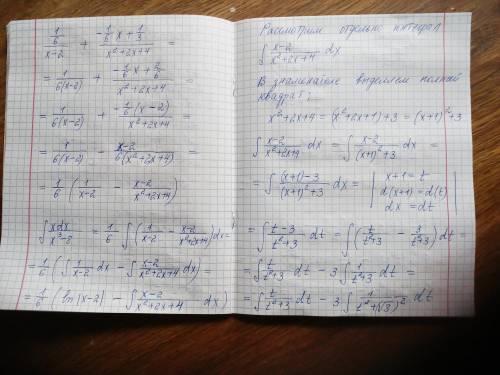 \frac{\frac{1}{6}}{x-2} + \frac{-\frac{1}{6}x + \frac{1}{3}}{x²+2x+4} =
= \frac{1}{6(x-2)} + \frac{-\frac{1}{6}x + \frac{2}{6}}{x²+2x+4} =
= \frac{1}{6(x-2)} + \frac{-\frac{1}{6}(x-2)}{x²+2x+4} =
= \frac{1}{6(x-2)} - \frac{x-2}{6(x²+2x+4)} =
= \frac{1}{6} (\frac{1}{x-2} - \frac{x-2}{x²+2x+4})
∫\frac{xdx}{x³-8} = \frac{1}{6} ∫(\frac{1}{x-2} - \frac{x-2}{x²+2x+4})dx =
= \frac{1}{6} (∫\frac{1}{x-2} dx - ∫\frac{x-2}{x²+2x+4} dx) =
= \frac{1}{6} (ln|x-2| - ∫\frac{x-2}{x²+2x+4} dx)
Рассмотрим отдельно интеграл
∫\frac{x-2}{x²+2x+4} dx
В знаменателе выделяем полный
квадрат:
x²+2x+4 = (x²+2x+1)+3 = (x+1)²+3
∫\frac{x-2}{x²+2x+4} dx = ∫\frac{x-2}{(x+1)²+3} dx =
= ∫\frac{(x+1)-3}{(x+1)²+3} dx = | x+1=t
d(x+1)=d(t)
dx = dt |
= ∫\frac{t-3}{t²+3} dt = ∫(\frac{t}{t²+3} - \frac{3}{t²+3}) dt =
= ∫\frac{t}{t²+3} dt - 3∫\frac{1}{t²+3} dt =
= ∫\frac{t}{t²+3} dt - 3∫\frac{1}{t²+(√3)²} dt